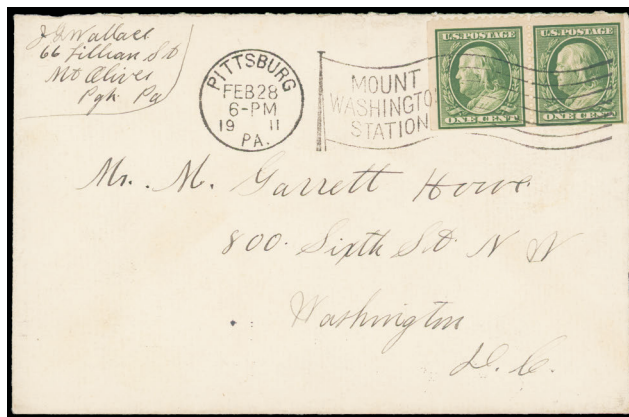 J A Wallace
66 Lillian St
Mt Oliver
Pgh Pa
PITTSBURG
FEB 28
6-PM
19 11
PA.
MOUNT
WASHINGTO
STATION
U.S. POSTAGE
ONE CENT
U.S. POSTAGE
ONE CENT
Mr. M. Garrett Howe
800. Sixth St. N W
Washington
D. C.